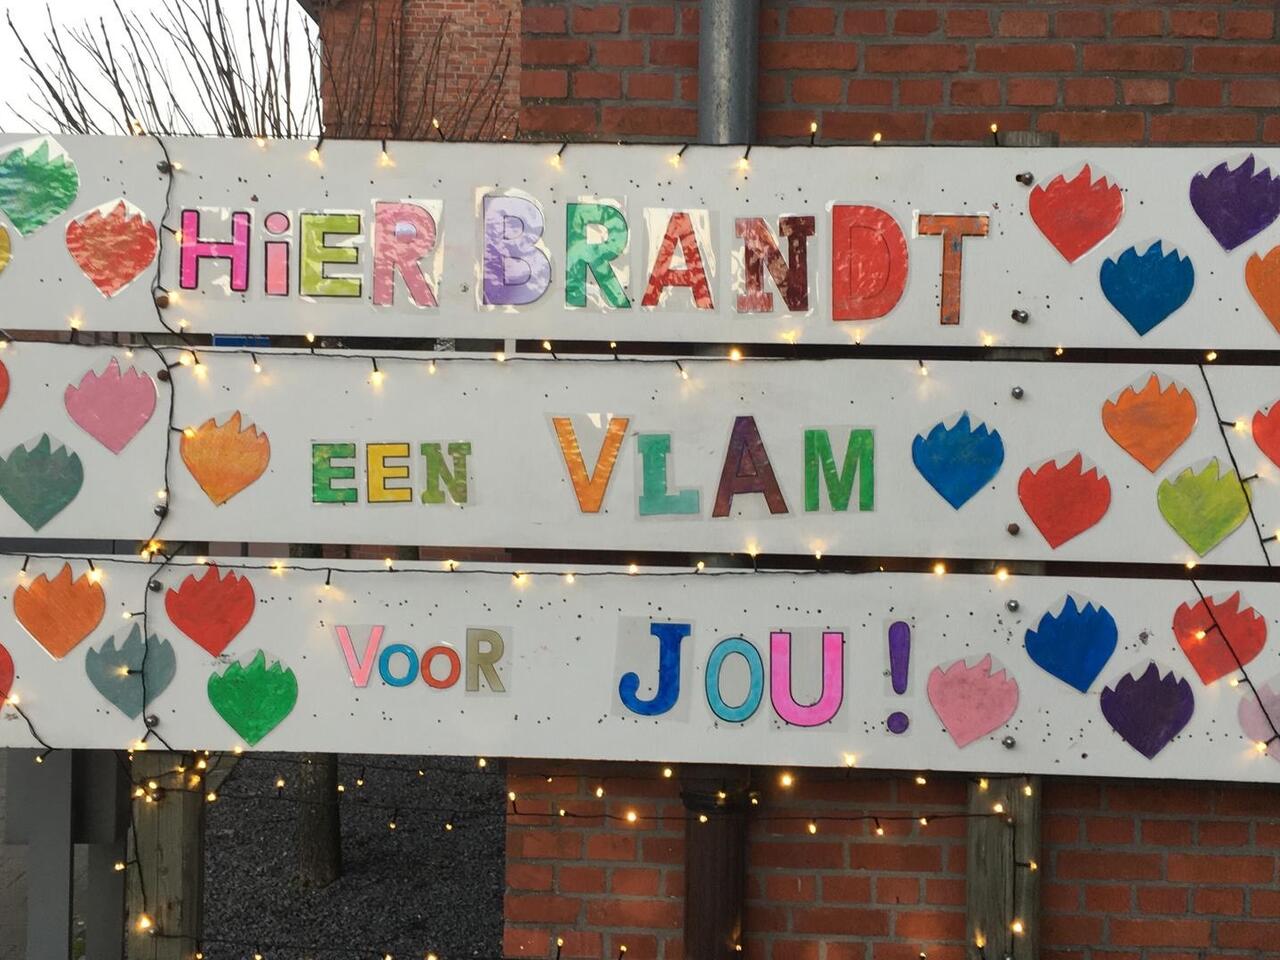 HiER BRANDT
EEN VLAM
VOOR JOU!